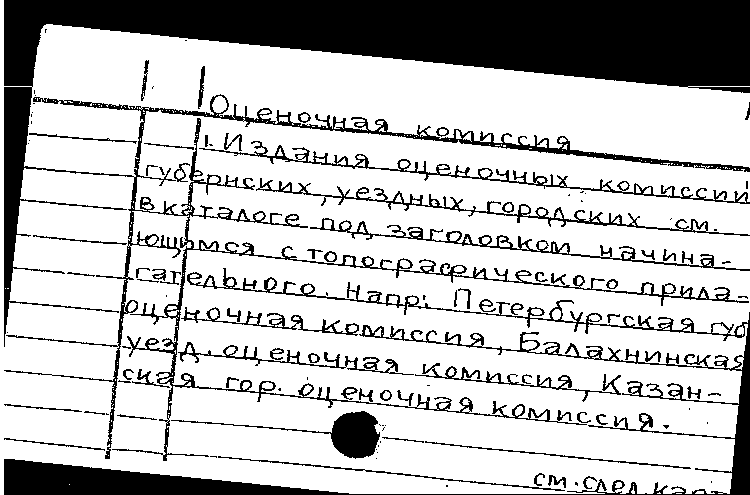 Оценочная комиссия
1. Издания оценочных комиссий
губернских, уездных, городских см.
в каталоге под заголовком начина-
ющимся с топографического прила-
гательного. Напр: Петербургская губ
оценочная комиссия, Балахнинская
уезд. оценочная комиссия, Казан-
ская гор. оценочная комиссия.
см. след. карт